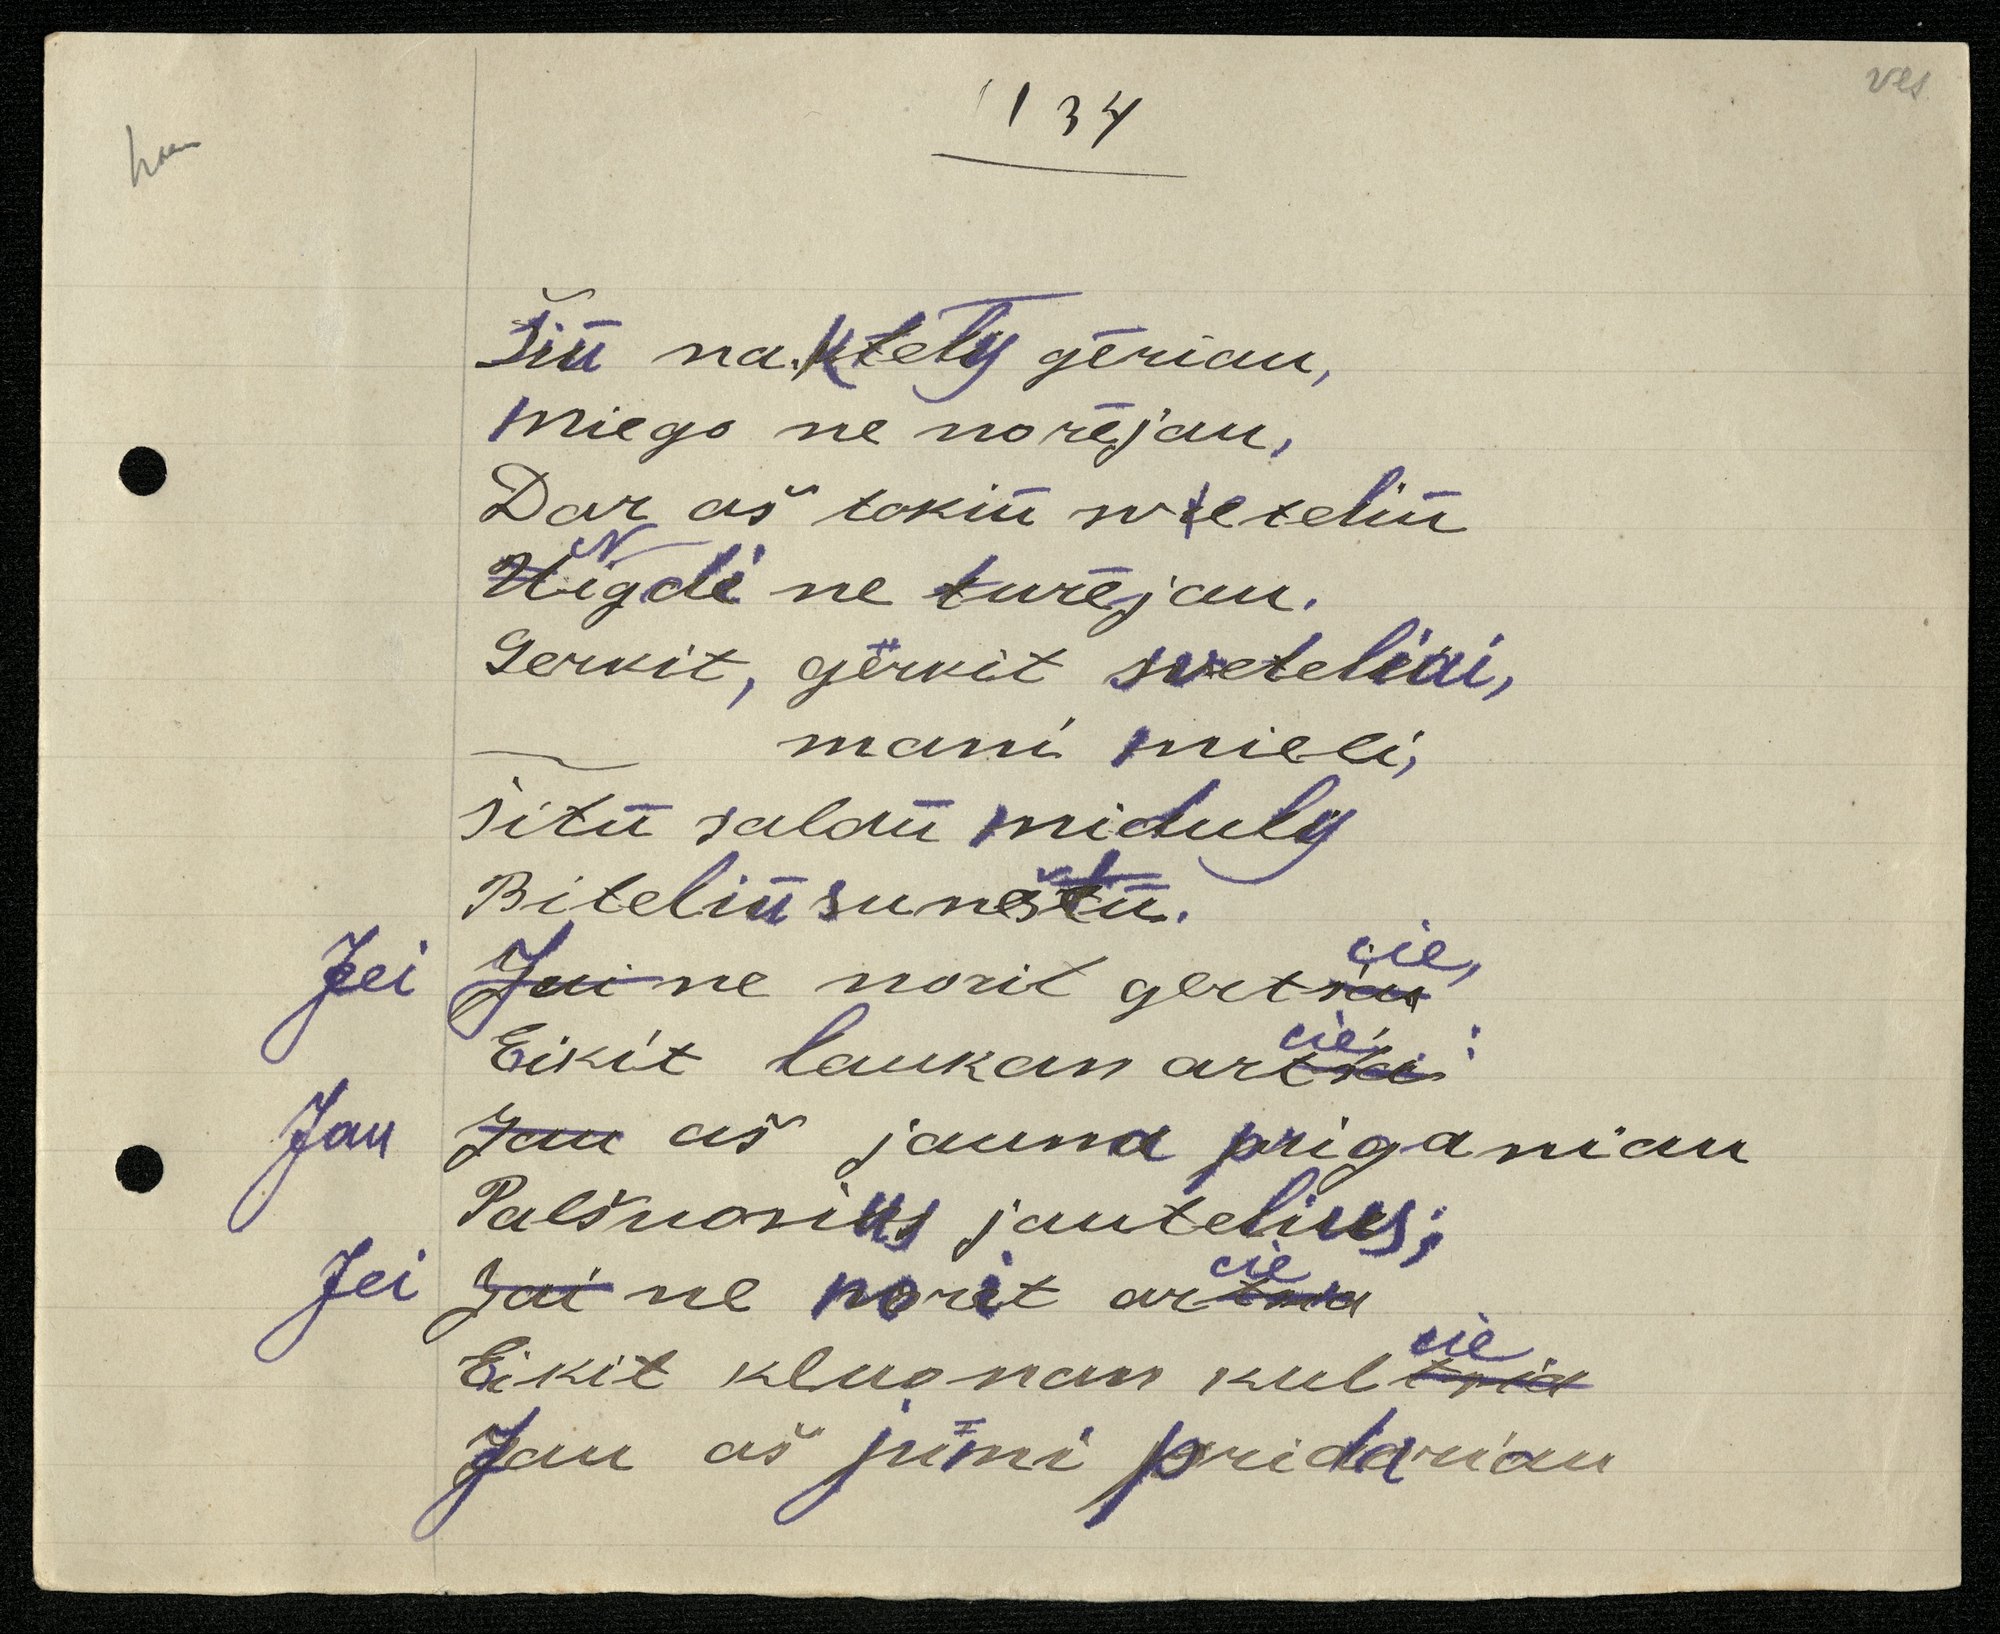 ves
134
Šiū naktely gēriau,
miego ne norējau,
Dar aš tokiū sveteliū
Nigdi ne turējau.
Gerkit, gërkit sveteliai,
mani mieli,
šitū saldū miduly
Biteliū suneštū.
Jei Jai ne norit gertcie,
Eikit laukan artcie:
Jau Jau aš jauna priganiau
Palšnorius jautelius;
Jei Jai ne norit arcie
Eikit kluonan kulcie
Jau aš jūmi pridariau